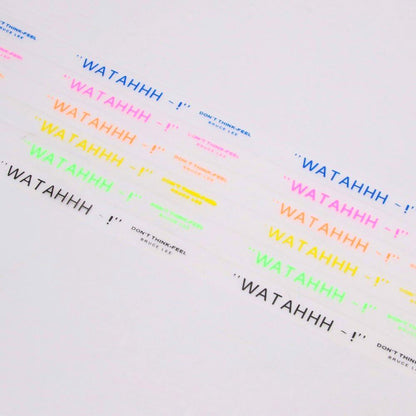 "WATAHHH -!" DON'T THINK.FEEL
BRUCE LEE
"WATAHHH -!" DON'T THINK.FEEL
BRUCE LEE
"WATAHHH -!" DON'T THINK.FEEL
BRUCE LEE
"WATAHHH -!" DON'T THINK.FEEL
BRUCE LEE
"WATAHHH -!" DON'T THINK.FEEL
BRUCE LEE
"WATAHHH -!" DON'T THINK.FEEL
BRUCE LEE
"WATAHHH -!"
"WATAHHH -!"
"WATAHHH -!"
"WATAHHH -!"
"WATAHHH -!"
"WATAHHH -!" DON'T THINK
BRUCE LEE